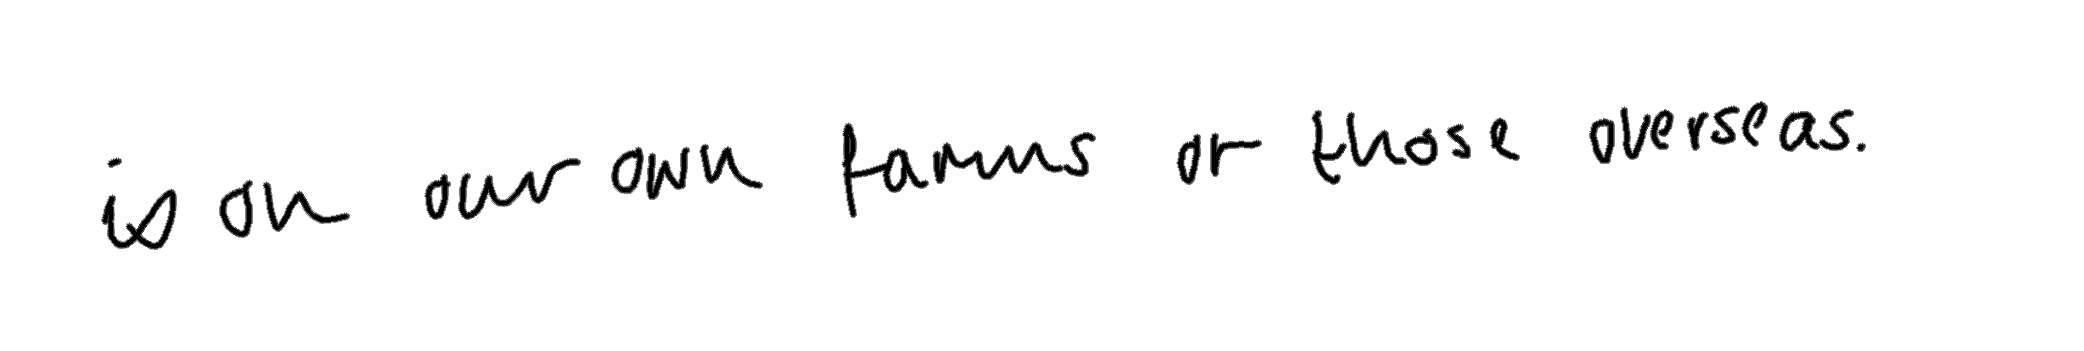 is on our own farms or those overseas.